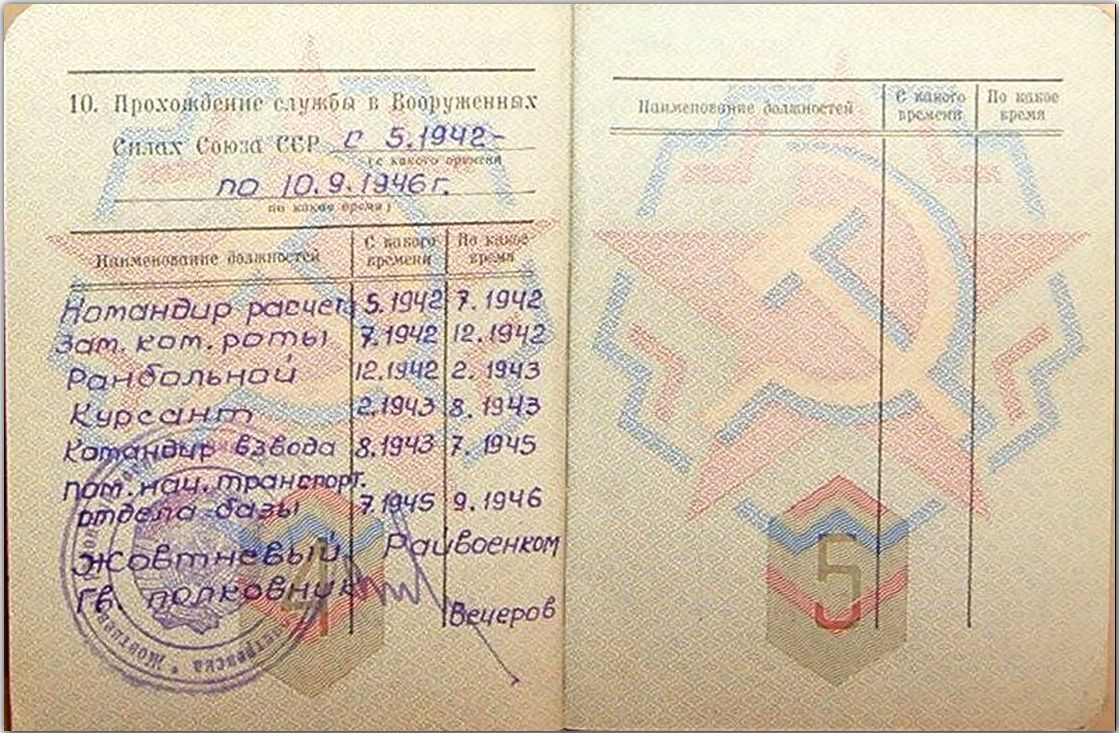 10. Прохождение службы в Вооруженных
Силах Союза ССР с 5.1942-
(с какого времени
по 10.9.1946 г.
по какое время)
Наименование должностей С какого времени По какое время
Командир расчета 5.1942 7.1942
Зам. ком. роты 7.1942 12.1942
Ранбольной 12.1942 2.1943
Курсант 2.1943 8.1943
Командир взвода 8.1943 7.1945
пом. нач. транспорт.
отдела базы 7.1945 9.1946
Жовтневый Райвоенком
Гв. полковник
Вечеров
4
Наименование должностей С какого времени По какое время
5